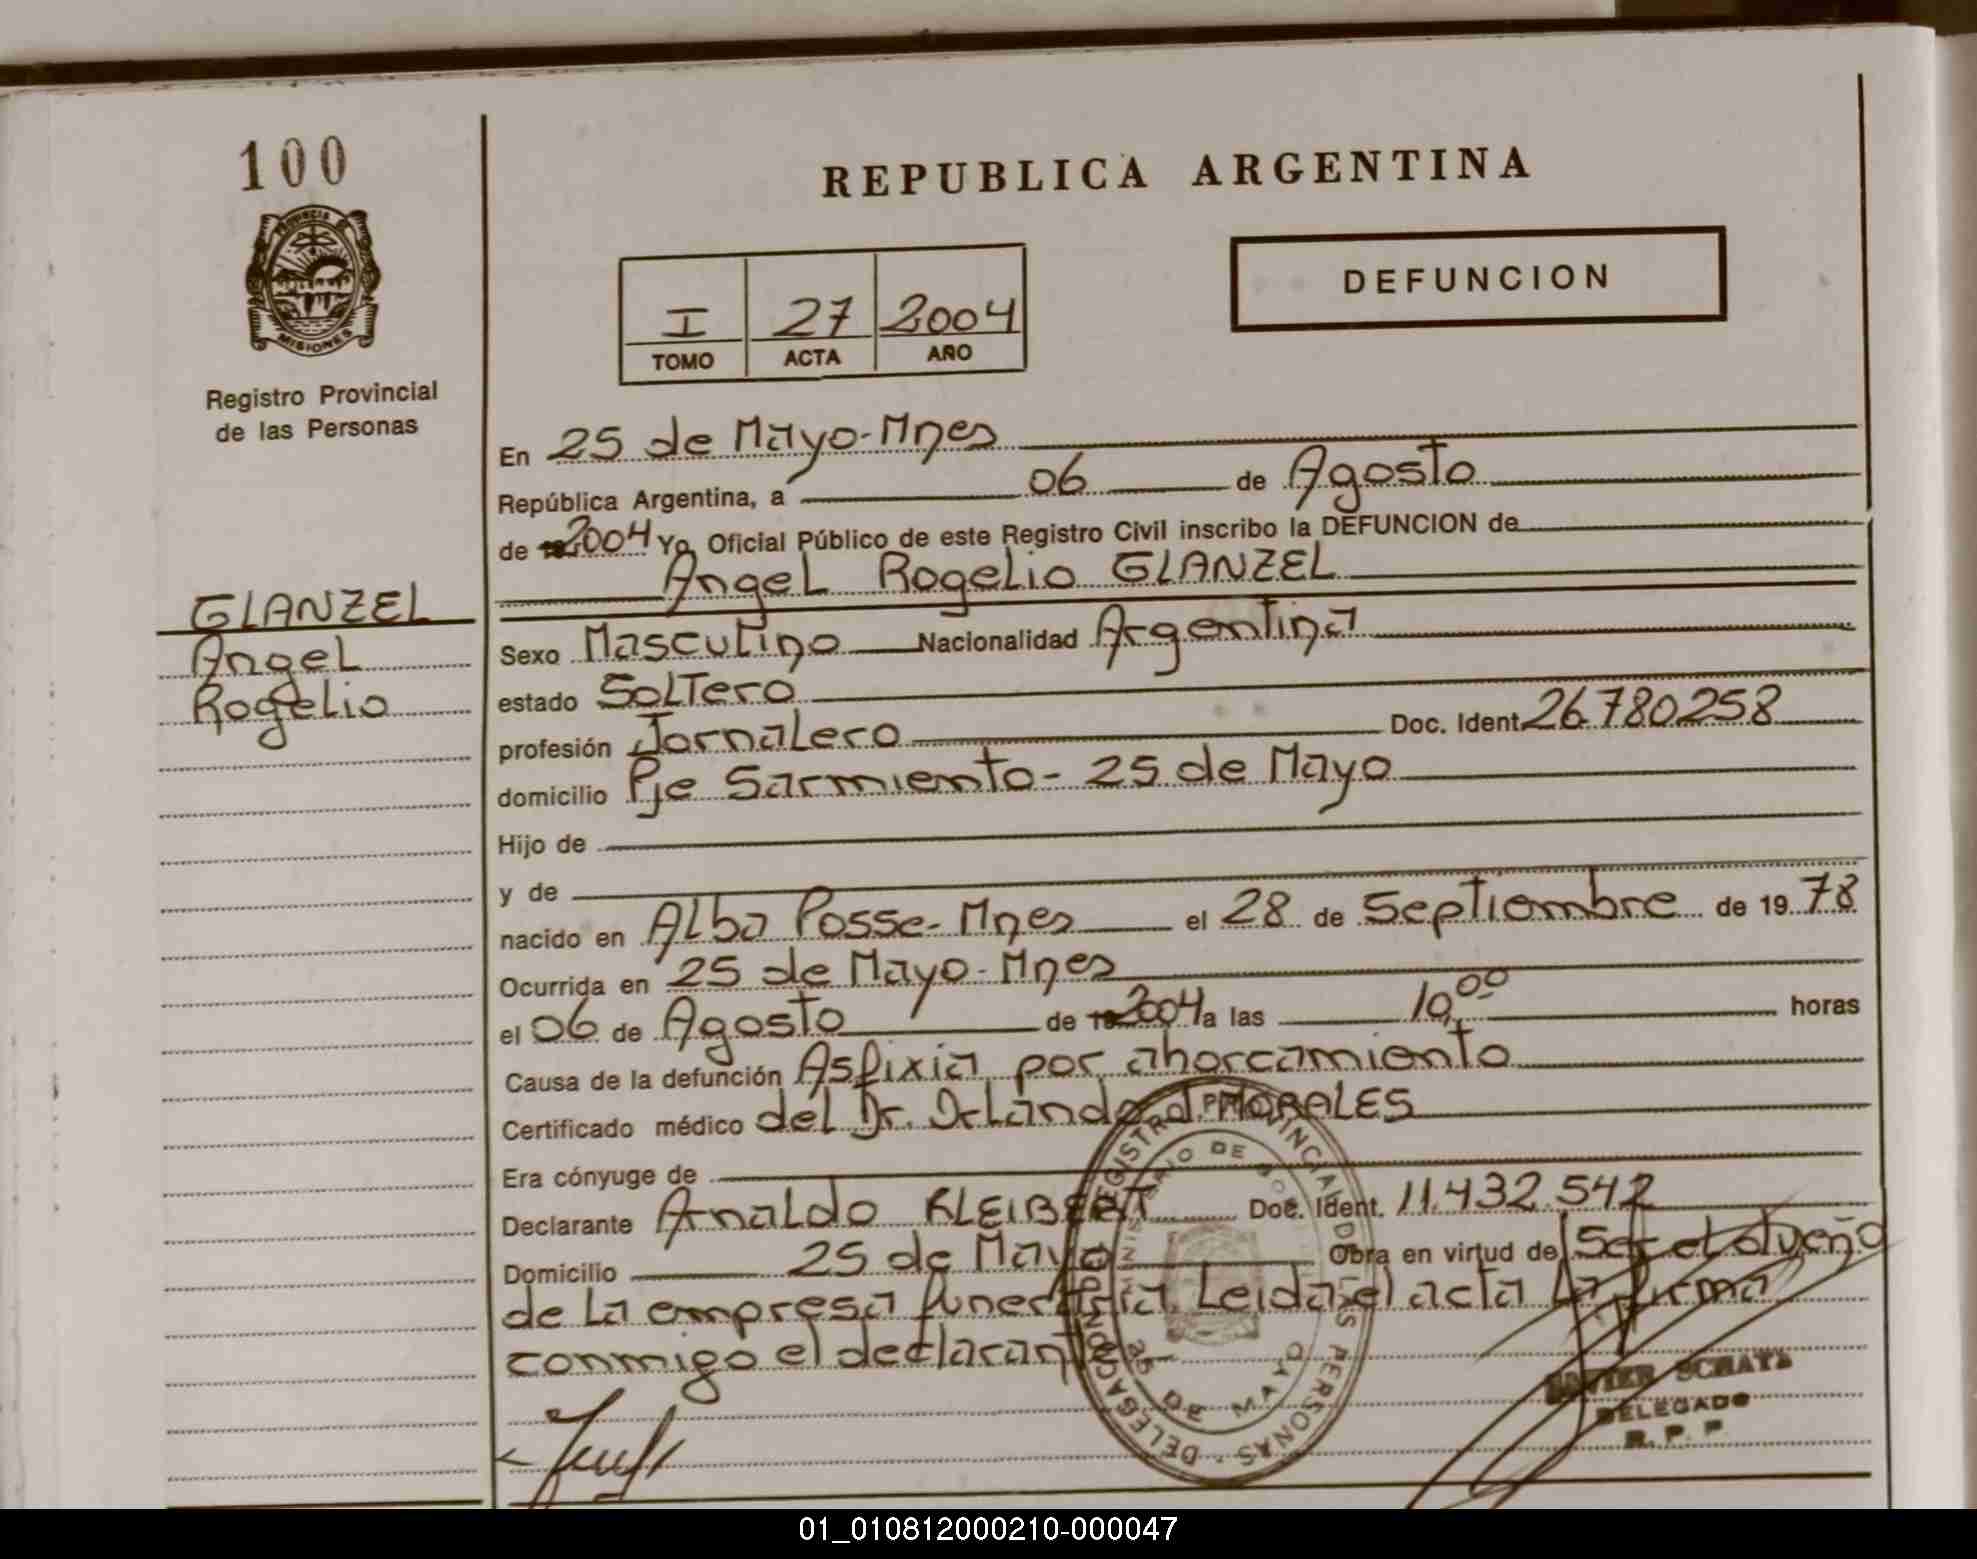 100
PROVINCIA DE
MISIONES
Registro Provincial
de las Personas
GLANZEL
Angel
Rogelio
REPUBLICA ARGENTINA
I 27 2004
TOMO ACTA AÑO
DEFUNCION
En 25 de Mayo-Mnes
República Argentina, a 06 de Agosto
de 2004 Yo, Oficial Público de este Registro Civil inscribo la DEFUNCION de
Angel Rogelio GLANZEL
Sexo Masculino Nacionalidad Argentina
estado Soltero
profesión Jornalero Doc. Ident. 26.780.258
domicilio Pje Sarmiento - 25 de Mayo
Hijo de
y de
nacido en Alba Posse - Mnes el 28 de Septiembre de 1978
Ocurrida en 25 de Mayo - Mnes
el 06 de Agosto de 2004 a las 10,00 horas
Causa de la defunción Asfixia por ahorcamiento
Certificado médico del Dr. Orlando J. MORALES
Era cónyuge de
Declarante Arnaldo KLEIBERT Doc. Ident. 11.432.542
Domicilio 25 de Mayo Obra en virtud de Ser el dueño
de la empresa funeraria. Leida el acta la firma
conmigo el declarante
REGISTRO PROVINCIAL DE LAS PERSONAS · DELEGACION
MINISTERIO DE GOB
25 DE MAYO
JAVIER SCHATZ
DELEGADO
R. P. P.
01_010812000210-000047